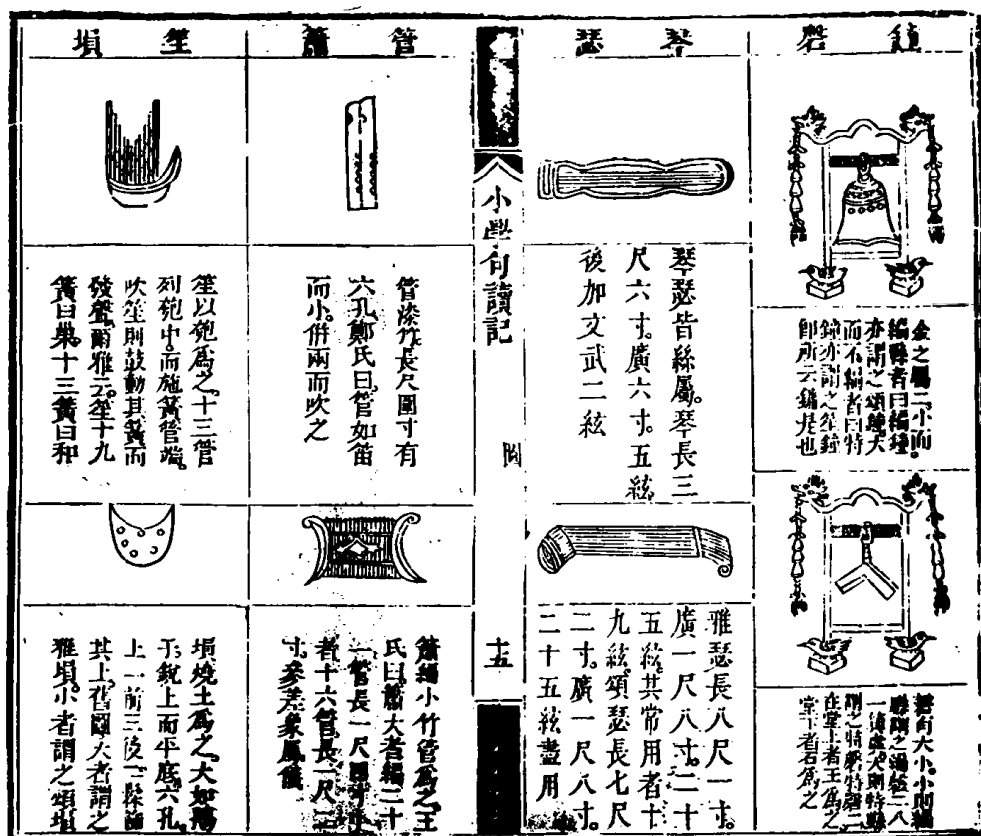 鐘磬
金之屬二。小而
編縣者曰編鐘
亦謂之頌鐘大
而不編者曰特
鐘亦謂之笙鐘
卽所云鏞是也
磬有大小。小則編
縣謂之編磬二八
大則特縣
謂之特磬特磬二
在堂上者玉爲之
堂下者石爲之
琴瑟
琴瑟皆絲屬。琴長三
尺六寸。廣六寸。五絃
後加文武二絃
雅瑟長八尺一寸。
廣一尺八寸。二十
五絃。其常用者十
九絃。頌瑟長七尺
二寸。廣一尺八寸。
二十五絃盡用
小學句讀記
圖
十五
管簫
管漆竹。長尺圍寸有
六孔鄭氏曰。管如笛
而小。併兩而吹之
簫編小竹管爲之。王
氏曰。簫大者編二十
一管長一尺四寸小
者十六管長一尺二
寸。參差象鳳儀
笙塤
笙以匏爲之。十三管
列匏中。而施簧管端。
吹笙則鼓動其簧而
發聲。爾雅云。笙十九
簧曰巢。十三簧曰和
塤燒土爲之。大如鵞
子。銳上而平底。六孔。
上一前三後二
其上。舊圖大者謂之
雅塤。小者謂之頌塤